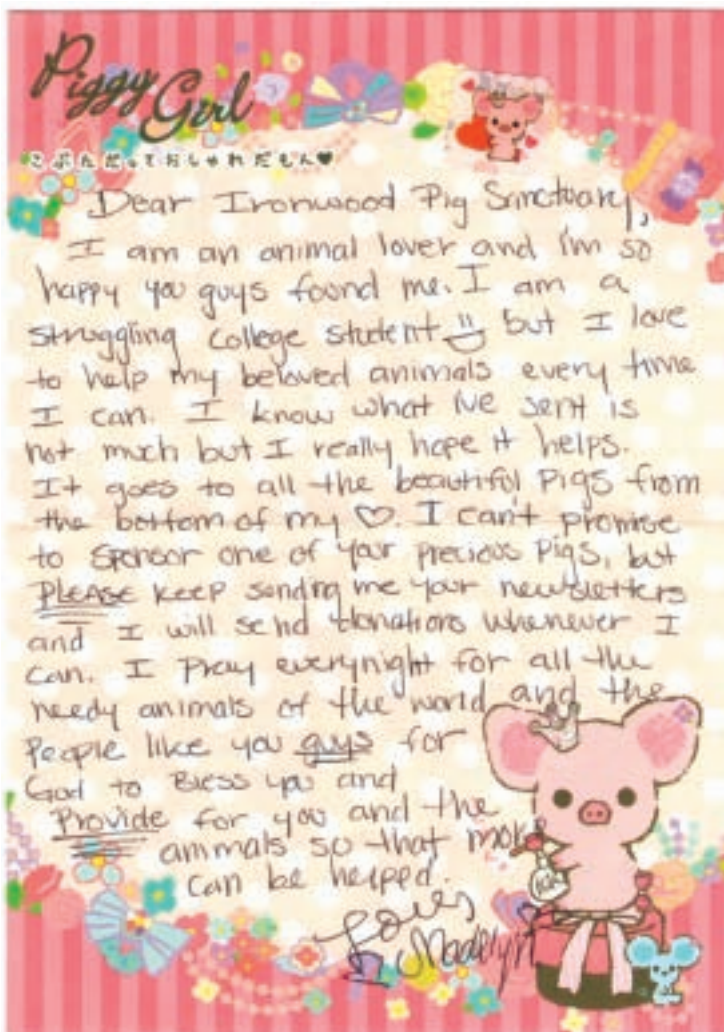 Piggy Girl
こぶただっておしゃれだもん♥
Dear Ironwood Pig Sanctuary,
I am an animal lover and i'm so
happy you guys found me. I am a
struggling college student but I love
to help my beloved animals every time
I can. I know what i've sent is
not much but I really hope it helps.
It goes to all the beautiful Pigs from
the bottom of my ♡. I can't promise
to sponsor one of your precious Pigs, but
PLEASE keep sending me your newsletters
and I will send donations whenever I
can. I Pray everynight for all the
needy animals of the world and the
People like you guys for
God to Bless you and
Provide for you and the
animals so that more
can be helped.
Love,
Madelyn